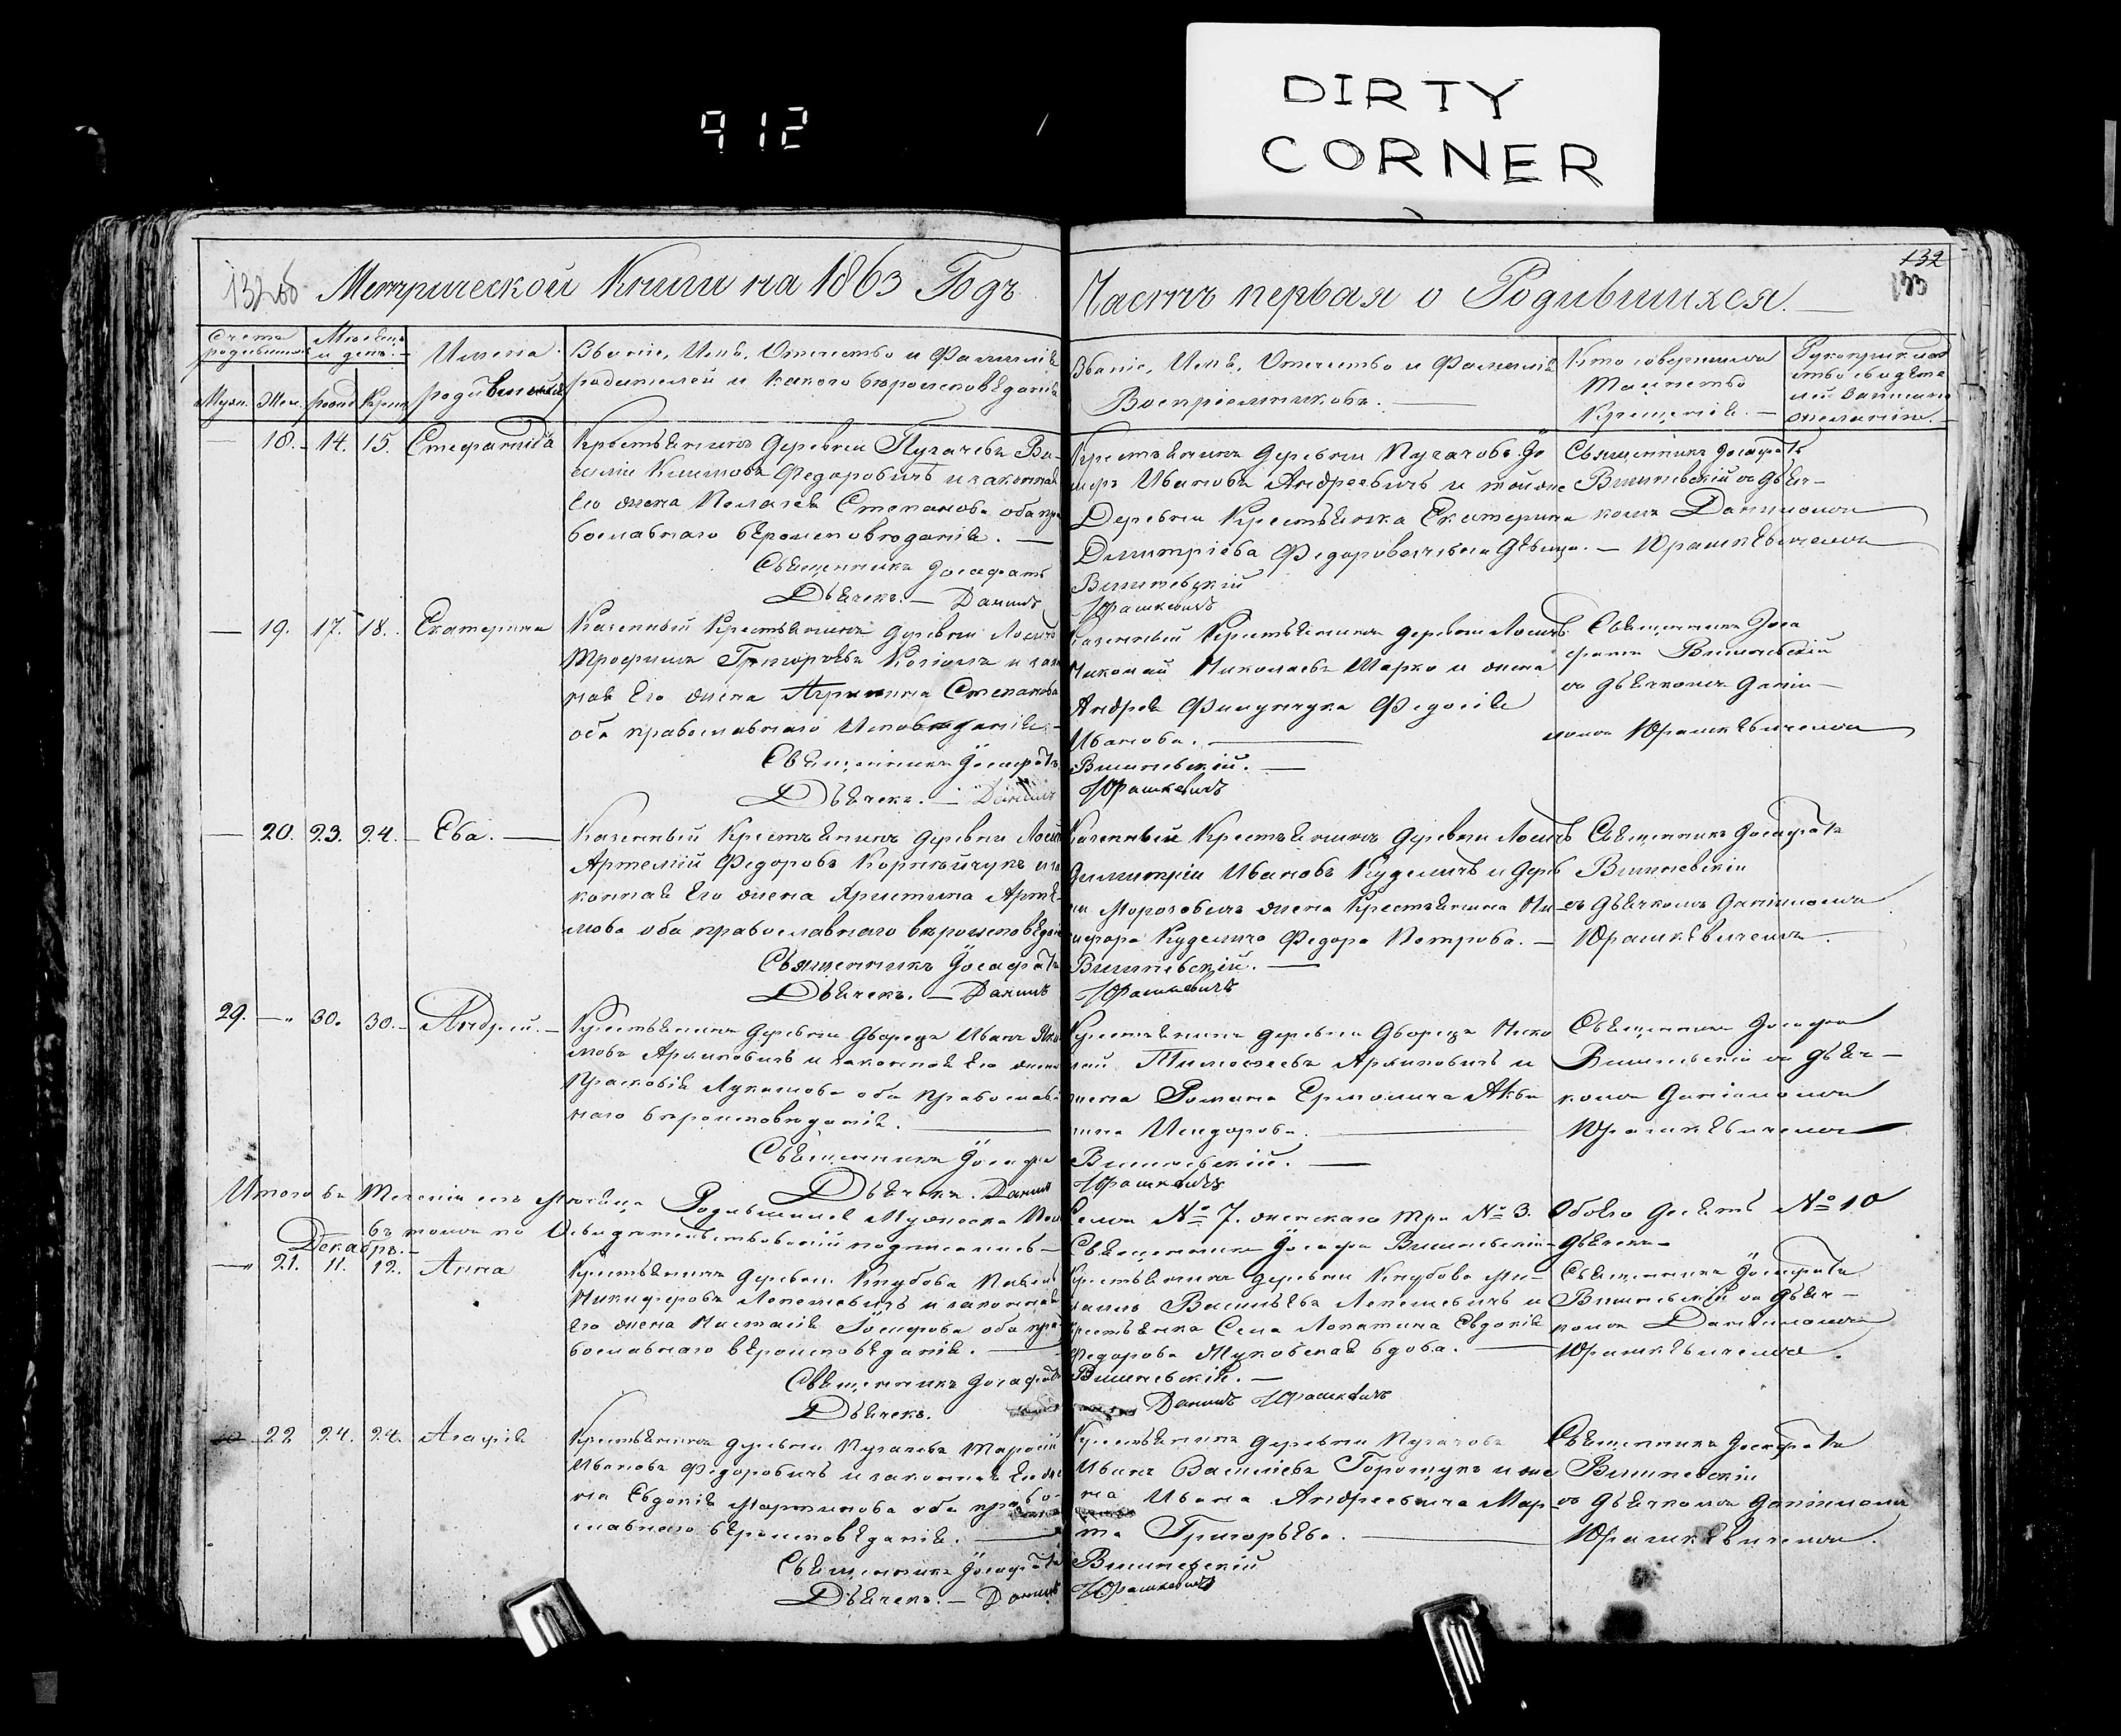 912
DIRTY
CORNER
132об Метрической Книги на 1863 Годъ
Часть первая о Родившихся.
132
133
Счетъ родившихся
Мѣсяцъ и день.
Имена родившихся
Званіе, Имя, Отчество и Фамилія
родителей и какого вѣроисповѣданія
Муж. Жен. рожд. Крещ.
Званіе, Имя, Отчество и Фамилія
Воспріемниковъ.
Кто совершилъ
Таинство
Крещенія.
Рукоприклад
ство свидѣте
лей
желанію.
— 18. 14. 15. Стефанида
Крестьянинъ Деревни Пугачева Ва-
силій Климовъ Федоровичъ и законная
Его жена Пелагея Степанова оба пра
вославнаго вѣроисповѣданія. —
Священникъ Іосафатъ
Дьячекъ. — Данилъ
Крестьянинъ Деревни Пугачовъ
Ивановъ Андреевичъ и той же
Деревни Крестьянка Екатерина
Димитріева Федоровичева Дѣвица. —
Вишневскій
Юрашкевичъ
Священникъ Іосафатъ
Вишневскій съ дьяч-
комъ Даниломъ
Юрашкевичемъ
— 19. 17. 18. Екатерина
Казенный Крестьянинъ Деревни
Трофимъ Григорьевъ и закон
ная Его жена Степанова
оба православнаго Исповѣданія. —
Священникъ Іосафатъ
Дьячекъ. — Данилъ
Казенный Крестьянинъ деревни
Николай Николаевъ Шарко и жена
Андрея Федосія
Иванова. —
Вишневскій. —
Юрашкевичъ
Священникъ Іоса
фатъ Вишневскій
съ дьячкомъ Дани-
ломъ Юрашкевичемъ
— 20. 23. 24. Ева. —
Казенный Крестьянинъ Деревни
Артемій Федоровъ Корнейчукъ и за
конная Его жена Христина
оба православнаго вѣроисповѣдан
Священникъ Іосафатъ
Дьячекъ. — Данилъ
Казенный Крестьянинъ Деревни
Димитрій Ивановъ Куделичъ и Дерев
ни Морозовичъ жена Крестьянина Ни-
кифора Куделича Федора Петрова. —
Вишневскій. —
Юрашкевичъ
Священникъ Іосафатъ
Вишневскій
съ дьячкомъ Даніиломъ
Юрашкевичемъ.
29. — 30. 30. Андрей. —
Крестьянинъ Деревни Дворецъ Иванъ
и законная Его жена
Прасковія Лукашова оба православ
наго вѣроисповѣданія. —
Священникъ Іосафатъ
Дьячекъ. Данилъ
Крестьянинъ деревни Дворецъ Нико
лай Тимофеевъ и
жена Романа Ермолича
Исидорова. —
Вишневскій. —
Юрашкевичъ
Священникъ Іосафатъ
Вишневскій съ дьяч-
комъ Даніиломъ
Юрашкевичемъ
Итого въ Теченіи сего Мѣсяца Родившихся Мужеска
Пола № 7. женскаго три № 3. Обоего Десять № 10
въ томъ по подписались —
Священникъ Іосафатъ Вишневскій — Дьячекъ —
Декабрь. —
— 21. 11. 12. Анна
Крестьянинъ Деревни Клубова Павелъ
Никифоровъ Лемешевичъ и законная
Его жена Настасія Іосифова оба пра-
вославнаго вѣроисповѣданія. —
Священникъ Іосафатъ
Дьячекъ.
Крестьянинъ деревни Клубова
Васильевъ Лемешевичъ и
Крестьянка Села Лопатина Евдокія
Федорова Жуковская вдова. —
Вишневскій. —
Данилъ Юрашкевичъ
Священникъ Іосафатъ
Вишневскій съ дьяч-
комъ Даниломъ
Юрашкевичемъ.
22 24. 24. Агафія
Крестьянинъ деревни Пугачева Тарасій
Ивановъ Федоровичъ и законная Его же
на Евдокія Мартинова оба право-
славнаго вѣроисповѣданія. —
Священникъ Іосафатъ
Дьячекъ. — Данилъ
Крестьянинъ деревни Пугачова
Иванъ Василіевъ Горощукъ и же
на Ивана Андреевича Мар-
та Григорьева. —
Вишневскій
Юрашкевичъ
Священникъ Іосафатъ
Вишневскій
съ дьячкомъ Даніиломъ
Юрашкевичемъ.